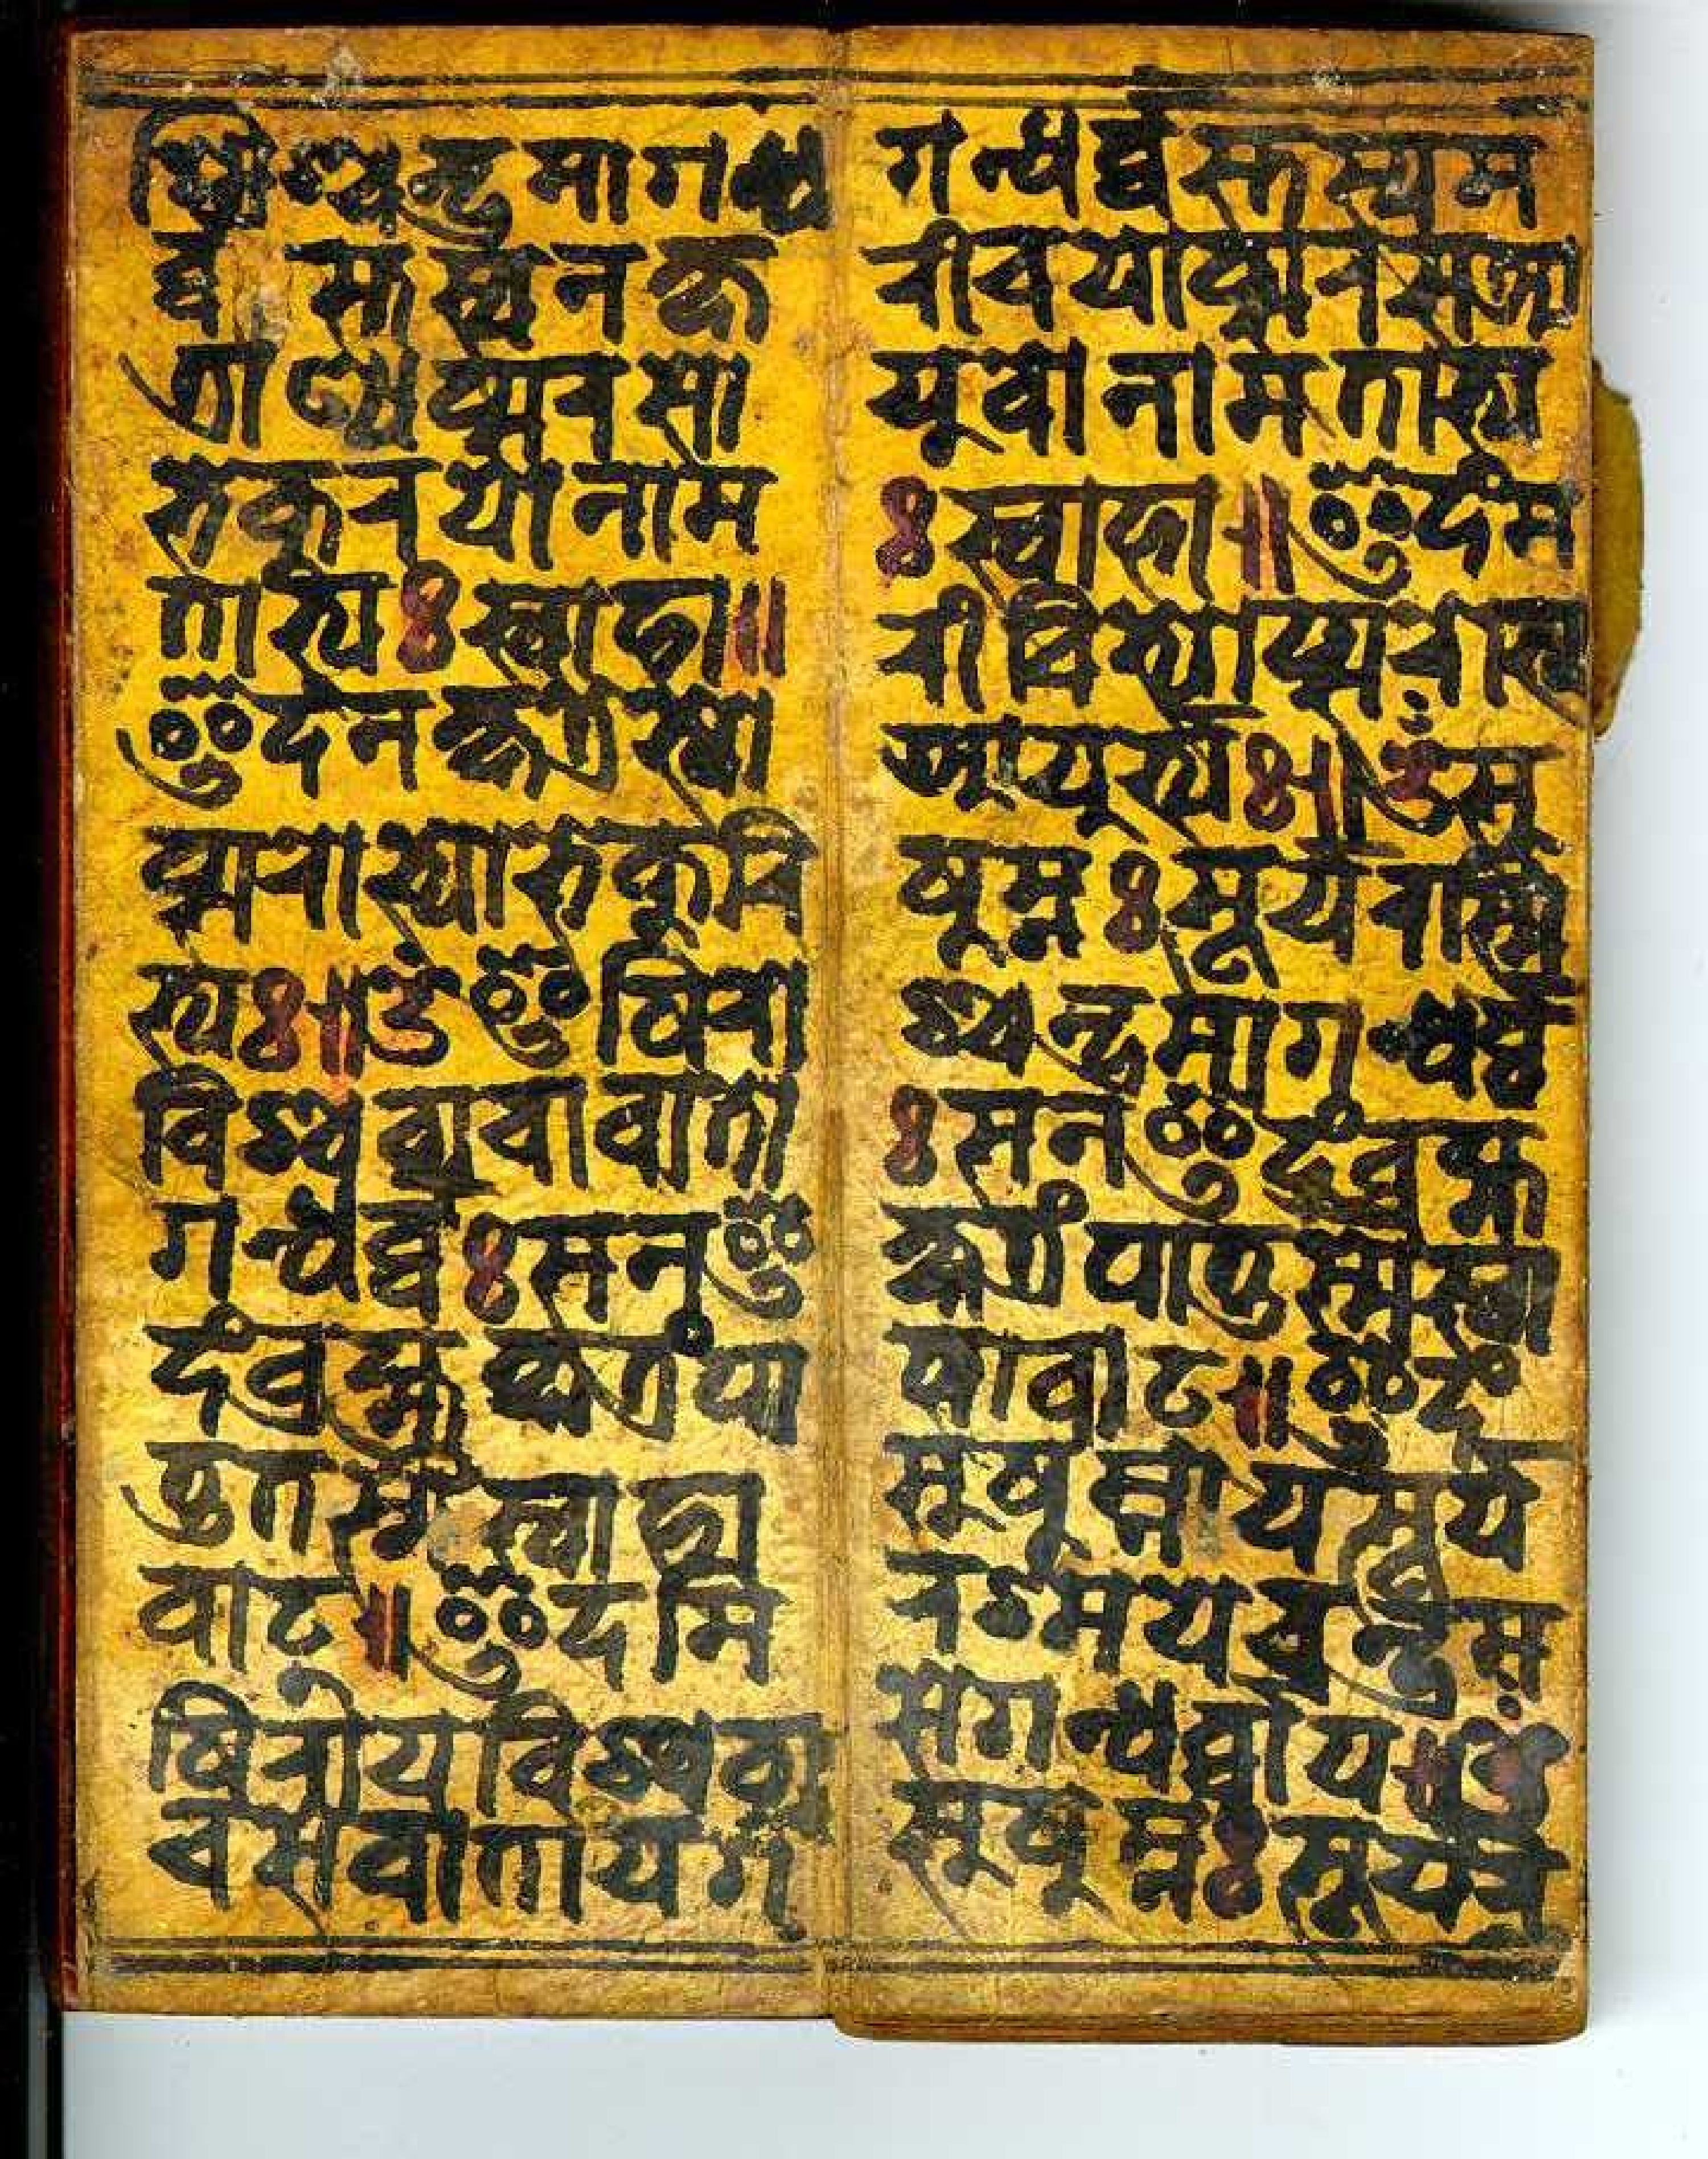 श्मिश्चन्द्रमा गन्ध
र्व स्तस्य नक्ष
त्राण्यप्सरसो
भेकुरयो नाम
ताभ्यः स्वाहा॥
इदं नक्षत्रेभ्यो
ऽप्सरोभ्यो भेकुरि
भ्यः॥ॐ इषिरो
विश्वव्यचा वातो
गन्धर्वः स न इ
दं ब्रह्म क्षत्रं पा
तु तस्मै स्वाहा
वाट्॥ इदमि
षिराय विश्वव्य
चसे वाताय ग
गन्धर्व्वस्तस्य म
रीचयोऽप्सरस आ
युवो नाम ताभ्य
ः स्वाहा॥ इदं म
रीचिभ्योऽप्सरोभ्य
आयुभ्यः॥ॐ सु
षुम्नः सूर्यरश्मि
श्चन्द्रमा गन्धर्व्व
ः स न इदं ब्रह्म
क्षत्रं पातु तस्मै स्वा
हा वाट्॥ इदं
सुषुम्नाय सूर्य
रश्मये चन्द्रम
से गन्धर्व्वाय॥ॐ
सुषुम्नः सूर्यर